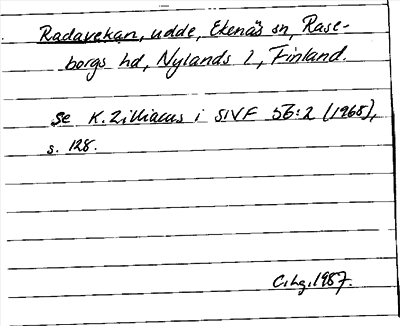 Radavekan, udde, Ekenäs sn, Rase-
borgs hd, Nylands l, Finland.
se K. Zilliacus i SIVF 56:2 (1965),
s. 128.
C.hg. 1987.